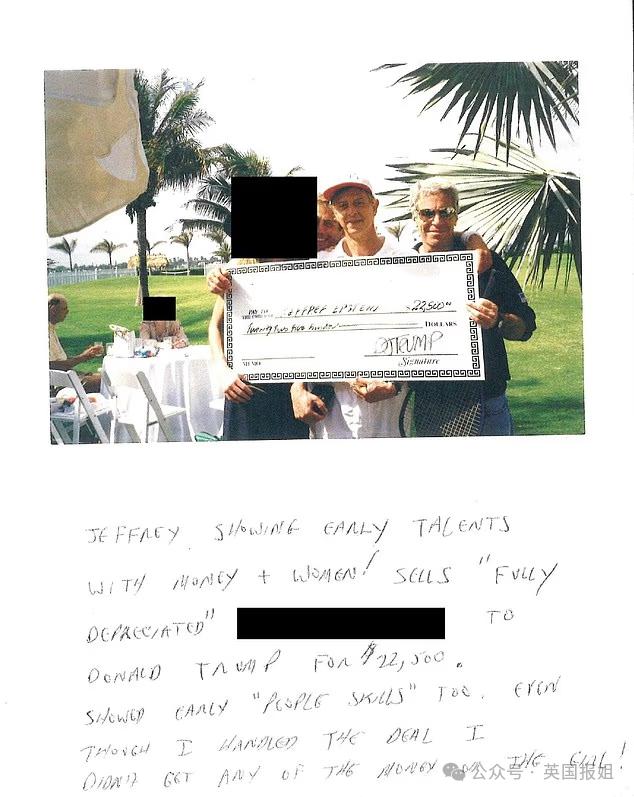 PAY TO THE ORDER OF JEFFREY EPSTEIN $22,500
DOLLARS
DJTRUMP
MEMO Signature
JEFFREY SHOWING EARLY TALENTS
WITH MONEY + WOMEN! SELLS "FULLY
DEPRECIATED" TO
DONALD TRUMP FOR $22,500.
SHOWED EARLY "PEOPLE SKILLS" TOO. EVEN
THOUGH I HANDLED THE DEAL I
DIDN'T GET ANY OF THE MONEY OR THE GIRL!
公众号 · 英国报姐